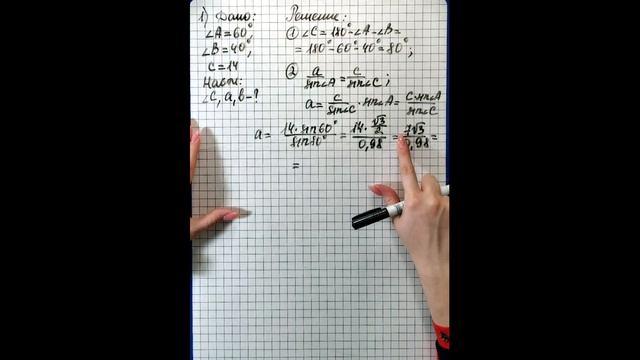 1) Дано:
∠A=60°,
∠B=40°,
c=14
Найти:
∠C, a, b-?
Решение:
① ∠C=180°-∠A-∠B=
=180°-60°-40°=80°;
② a/sin∠A=c/sin∠C;
a=c/sin∠C·sin∠A=c·sin∠A/sin∠C
a=14·sin60°/sin80°=14·√3/2/0,98=7√3/0,98=
=